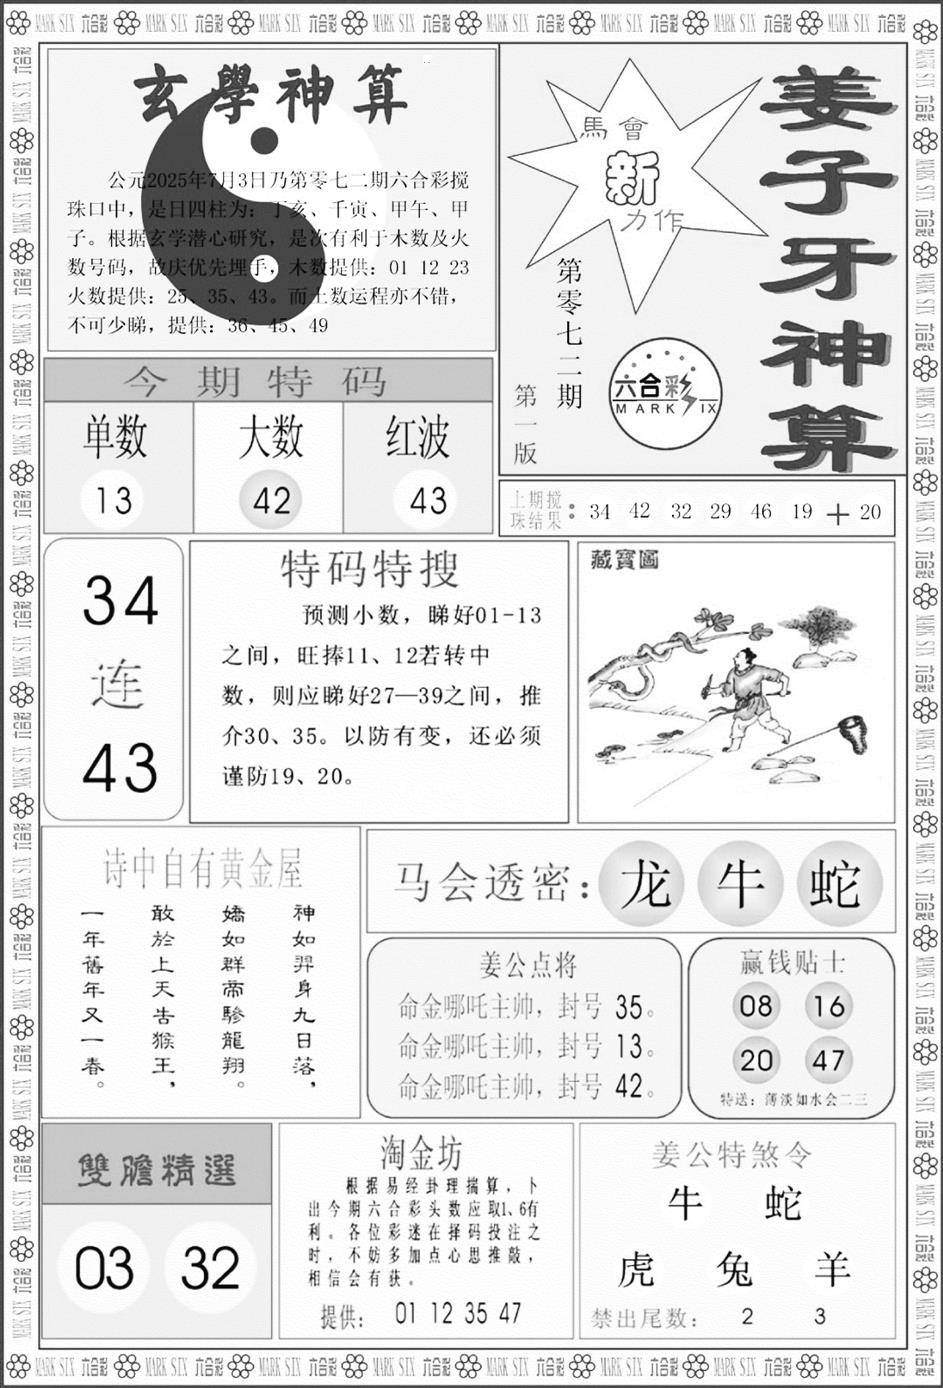 玄學神算
公元2025年7月3日乃第零七二期六合彩搅
珠口中，是日四柱为：丁亥、千寅、甲午、甲
子。根据玄学潜心研究，是次有利于木数及火
数号码，故庆优先埋手，木数提供：01 12 23
火数提供：25、35、43。而土数运程亦不错，
不可少睇，提供：36、45、49
馬會
新
力作
姜子牙神算
第零七二期
第一版
六合彩
MARK SIX
今期特码
单数 大数 红波
13 42 43
上期搅
珠结果：34 42 32 29 46 19 + 20
34
连
43
特码特搜
预测小数，睇好01-13
之间，旺捧11、12若转中
数，则应睇好27—39之间，推
介30、35。以防有变，还必须
谨防19、20。
藏寶圖
诗中自有黄金屋
神如羿身九日落，
嬌如群帝驂龍翔。
敢於上天告猴王，
一年舊年又一春。
马会透密：龙 牛 蛇
姜公点将
命金哪吒主帅，封号 35。
命金哪吒主帅，封号 13。
命金哪吒主帅，封号 42。
赢钱贴士
08 16
20 47
特送：薄淡如水会二三
雙膽精選
03 32
淘金坊
根据易经卦理揣算，卜
出今期六合彩头数应取1、6有
利。各位彩迷在择码投注之
时，不妨多加点心思推敲，
相信会有获。
提供： 01 12 35 47
姜公特煞令
牛 蛇
虎 兔 羊
禁出尾数： 2 3